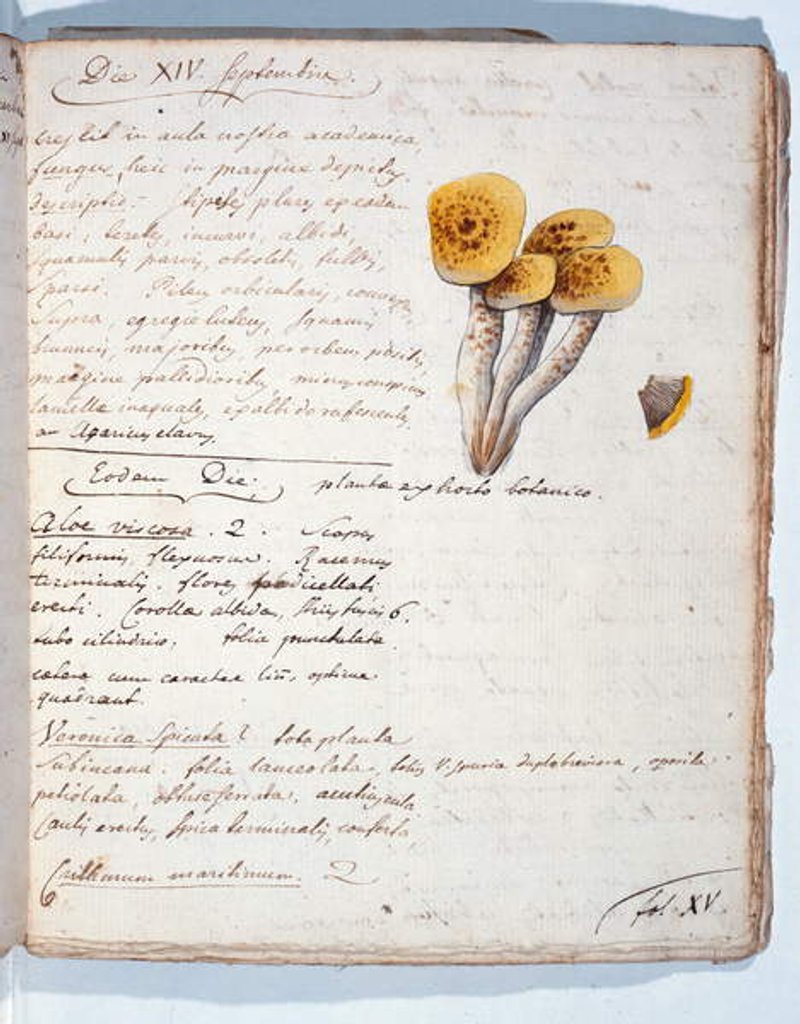 Die XIV Septembris.
crescit in aula nostra academica,
fungus, heic in margine depictus
descriptio:- stipites plures ex eadem
basi; teretes, incurvi, albidi,
squamulis parvis, obsoletis, fulvis,
sparsi. Pileus orbicularis, convexus
supra, egregie luteus, squamis
brunneis, majoribus, per orbem positis,
margine pallidioribus, minus conspicuis
lamellae inaequales, ex albido rufescentes,
an Agaricus clavus,
Eodem Die: plantae ex horto botanico.
Aloe viscosa . 2 . Scapus
filiformis, flexuosus. Racemus
terminalis. flores pedicellati
erecti. Corolla albida, striis fuscis 6.
tubo cilindrico, folia punctulata
cetera cum caractere Lin, optime
quadrant.
Veronica Spicata ? tota planta
subincana. folia lanceolata, foliis V. spuria duplo breviora, opposita
petiolata, obtuse serrata,
Caulis erectus, spica terminalis, conferta
Crithmum maritimum. 2
fol. XV.